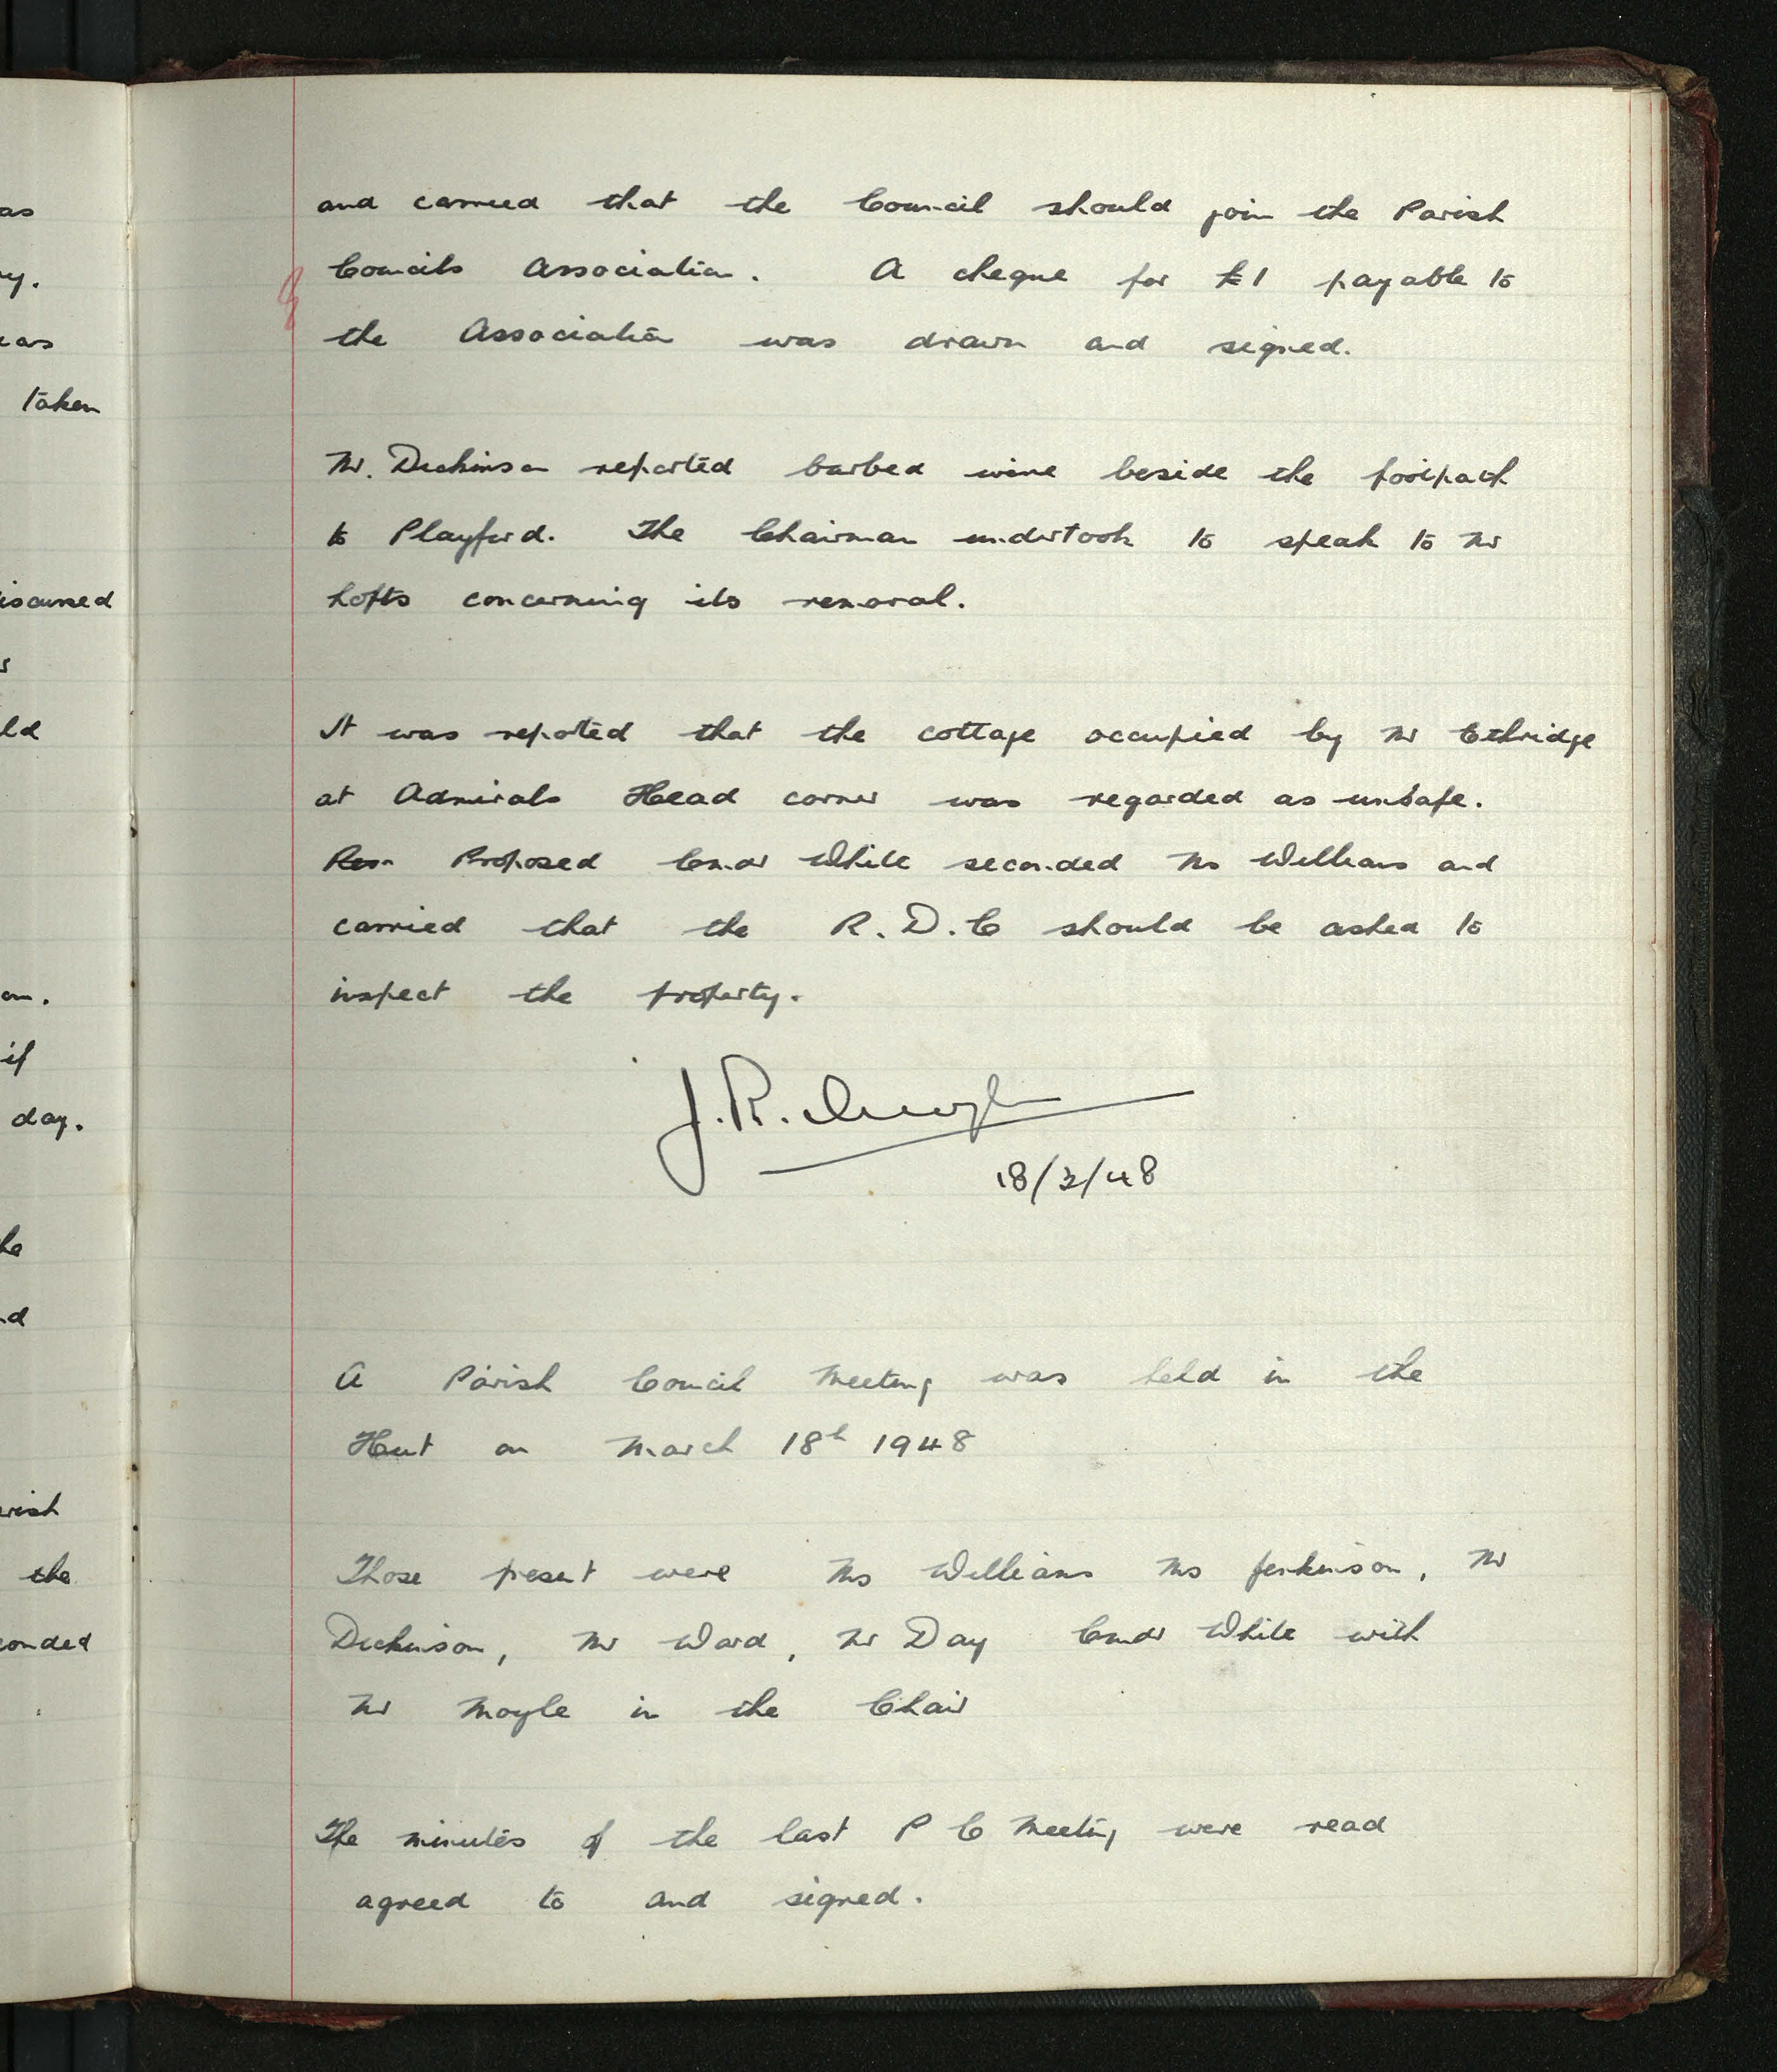 as
y.
as
taken
iscussed
s
ld
om.
if
day.
he
d
rish
the
onded
and carried that the Council should join the Parish
Councils Association. A cheque for £1 payable to
the Association was drawn and signed.
Mr. Dickinson reported barbed wire beside the footpath
to Playford. The Chairman undertook to speak to Mr
Lofts concerning its removal.
It was reported that the cottage occupied by Mr Ethridge
at Admirals Head corner was regarded as unsafe.
Proposed Cmdr White seconded Ms Williams and
carried that the R.D.C should be asked to
inspect the property.
J.R.
18/3/48
A Parish Council Meeting was held in the
Hut on March 18th 1948
Those present were Ms Williams Ms Jenkinson, Mr
Dickinson, Mr Ward, Mr Day Cmdr White with
Mr Moyle in the Chair
The minutes of the last P C Meeting were read
agreed to and signed.